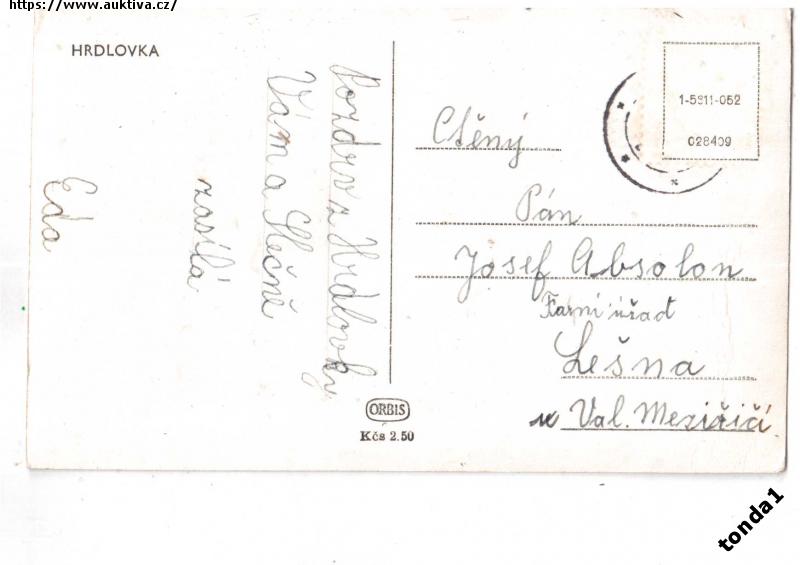 https://www.auktiva.cz/
HRDLOVKA
Pozdrav z Hrdlovky
Vám a Slečně
zasílá
Eda
ORBIS
Kčs 2.50
1-5311-052
028409
Ctěný
Pán
Josef Absolon
Farní úřad
Lešna
u Val. Meziříčí
tonda1